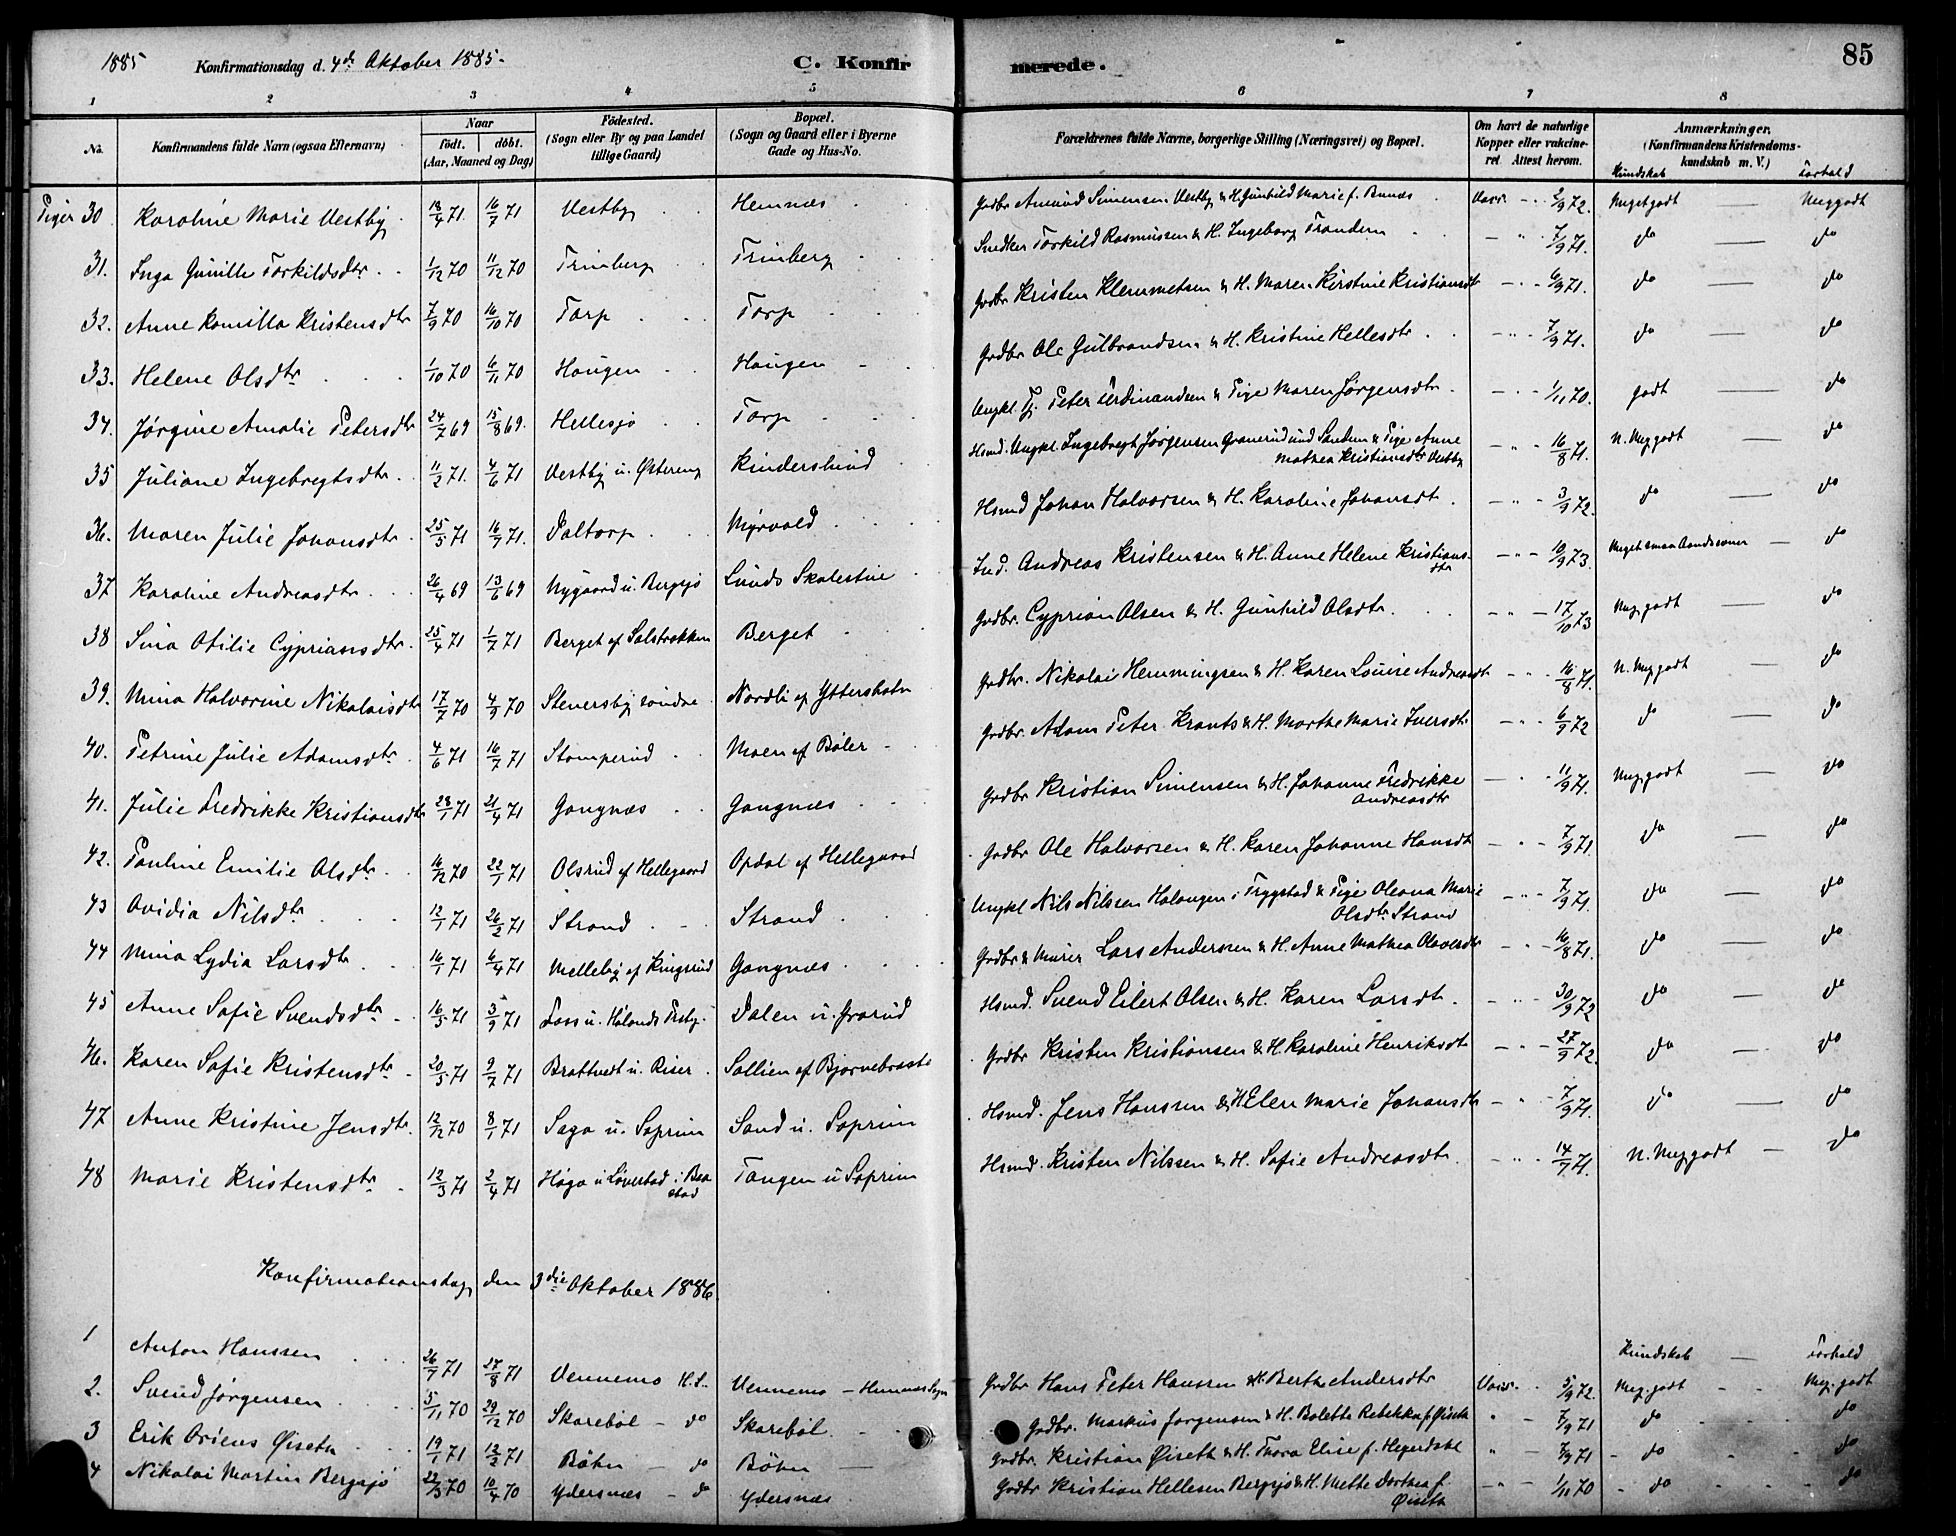 1885 Konfirmationsdag d. 4de Oktober 1885. C. Konfirmerede. 85
1 2 3 4 5 6 7 8
No. Konfirmandens fulde Navn (ogsaa Efternavn) Naar født. døbt. (Aar, Maaned og Dag) Fødested. (Sogn eller By og paa Landet tillige Gaard) Bopæl. (Sogn og Gaard eller i Byerne Gade og Hus-No. Forældrenes fulde Navne, borgerlige Stilling (Næringsvei) og Bopæl. Om havt de naturlige Kopper eller vaccineret Attest herom. Anmærkninger. (Konfirmandens Kristendomskundskab m. V.)
Kundskab Forhold
Piger 30 Karoline Marie Vestby 18/4 71 16/7 71 Vestby Hemnæs Grdbr Amund Simensen Vestby & H. Gunhild Marie f. Bunæs Vacc. 2/9 72. Meget godt Meg godt
31. Inga Gunille Torkildsdtr 1/12 70 11/12 70 Trinberg Trinberg Snedker Torkild Rasmussen & H. Ingeborg Trondsen 7/9 71. do do
32. Anne Kamilla Kristensdtr 7/9 70 16/10 70 Torp Torp Grdbr Kristen Klemmetsen & H. Maren Kirstine Kristiansdtr 6/9 71. do do
33. Helene Olsdtr 1/10 70 6/11 70 Haugen Haugen Grdbr Ole Gulbrandsen & H. Kristine Hellesdtr 7/9 71. do do
34. Jørgine Amalie Petersdtr 24/7 69 15/8 69. Hellesjø Torp Ungkl. Tj. Peter Ferdinandsen & Pige Maren Jørgensdtr 1/11 70. godt do
35 Juliane Ingebregtsdtr 11/2 71. 4/6 71 Vestby u. Østereng Kinderslund Hsmd. Ungkl. Ingebregt Jørgensen Granerud und Sandem & Pige Anne Mathea Kristiansdtr Vestby 16/8 71. N. Meg godt do
36. Maren Julie Johansdtr 25/5 71 16/7 71. Daltorp Myrvold Hsmd Johan Halvorsen & H. Karoline Johansdtr 3/9 72. do do
37 Karoline Andreasdtr 26/4 69 13/6 69 Nygaard u. Bergsjø Lunds Skolestue Ind. Andreas Kristensen & H. Anne Helene Kristiansdtr 10/9 73. Meget smaa Aandsevner do
38 Sina Otilie Cypriansdtr 25/4 71 1/7 71 Berget af Solstrakken Berget Grdbr. Cyprian Olsen & H. Gunhild Olsdtr 17/10 73 Meg. godt do
39. Mina Halvorine Nikolaisdtr 17/7 70 4/9 70 Stenersby søndre Nordli af Yttersholn Grdbr. Nikolai Hemmingsen & H. Karen Louise Andreasdt 16/8 71. N. Meg godt do
40. Petrine Julie Adamsdtr 4/6 71 16/7 71 Stomperud Moen af Bøler Grdbr. Adam Peter Krants & H. Marthe Marie Iversdtr 6/9 72 do do
41. Julie Fredrikke Kristiansdtr 28/1 71 21/4 71 Gangnæs Gangnæs Grdbr Kristian Simensen & H. Johanne Fredrikke Andreasdtr 11/9 71. Meg. godt do
42. Pauline Emilie Olsdtr 16/12 70 22/1 71 Olsrud af Hellegaard Opdal af Hellegaard Grdbr Ole Halvorsen & H. Karen Johanne Hansdt 7/9 71. do do
43 Ovidia Nilsdtr 12/1 71 26/2 71 Strand Strand Ungkl Nils Nilssen Holangen i Trygstad & Pige Oleana Marie Olsdtr Strand 7/9 71. do do
44 Mina Lydia Larsdtr 16/1 71 6/4 71 Melleby af Kingsrud Gangnæs Grdbr & Murer Lars Andersen & H. Anne Mathea Olavesdtr 16/8 71. do do
45 Anne Sofie Svendsdtr 16/5 71 3/9 71 Foss u. Hølands Prstg. Dalen u. Grorud Hsmd. Svend Eilert Olsen & H. Karen Larsdtr 30/9 72 do do
46. Karen Sofie Kristensdtr 20/5 71 9/7 71 Brattvedt u. Riser Sollien af Bjørnebraate Grdbr Kristen Kristiansen & H. Karoline Henriksdt 27/9 72. do do
47 Anne Kristine Jensdtr 12/12 70 8/1 71 Saga u. Soprim Sand u. Soprim Hsmd. Jens Hanssen & H. Elen Marie Johansdtr 7/9 71. do do
48 Marie Kristensdtr 12/3 71 2/4 71 Haga u Løverstad i Baastad Tangen u Soprim Hsmd. Kristen Nilssen & H. Sofie Andreasdtr 14/7 71. N. Meg godt do
Konfirmationsdag den 3die Oktober 1886.
Kundskab Forhold
1 Anton Hanssen 26/7 71 27/8 71 Vennemo H.S. Vennemo - Hemnæs Sogn Grdbr Hans Peter Hanssen & H. Berthe Andersdtr Vacc. 5/9 72. Meg. godt Meg. godt
2. Svend Jørgensen 5/11 70 29/12 70 Skarebøl - do Skarebøl Grdbr. Markus Jørgensen & H. Bolette Rebekka f Øiseth 7/9 71 do do
3 Erik Oriens Øiseth 19/1 71 12/2 71 Bøhn - do Bøhn Grdbr. Kristian Øiseth & H. Thora Elise f. Hegerdahl 7/9 71 do do
4 Nikolai Martin Bergsjø 22/3 70 10/4 70 Ydersnæs - do Ydersnæs Grdbr Kristian Hellesen Bergsjø & H. Mette Dorthea f. Øiseth 1/11 70 do do